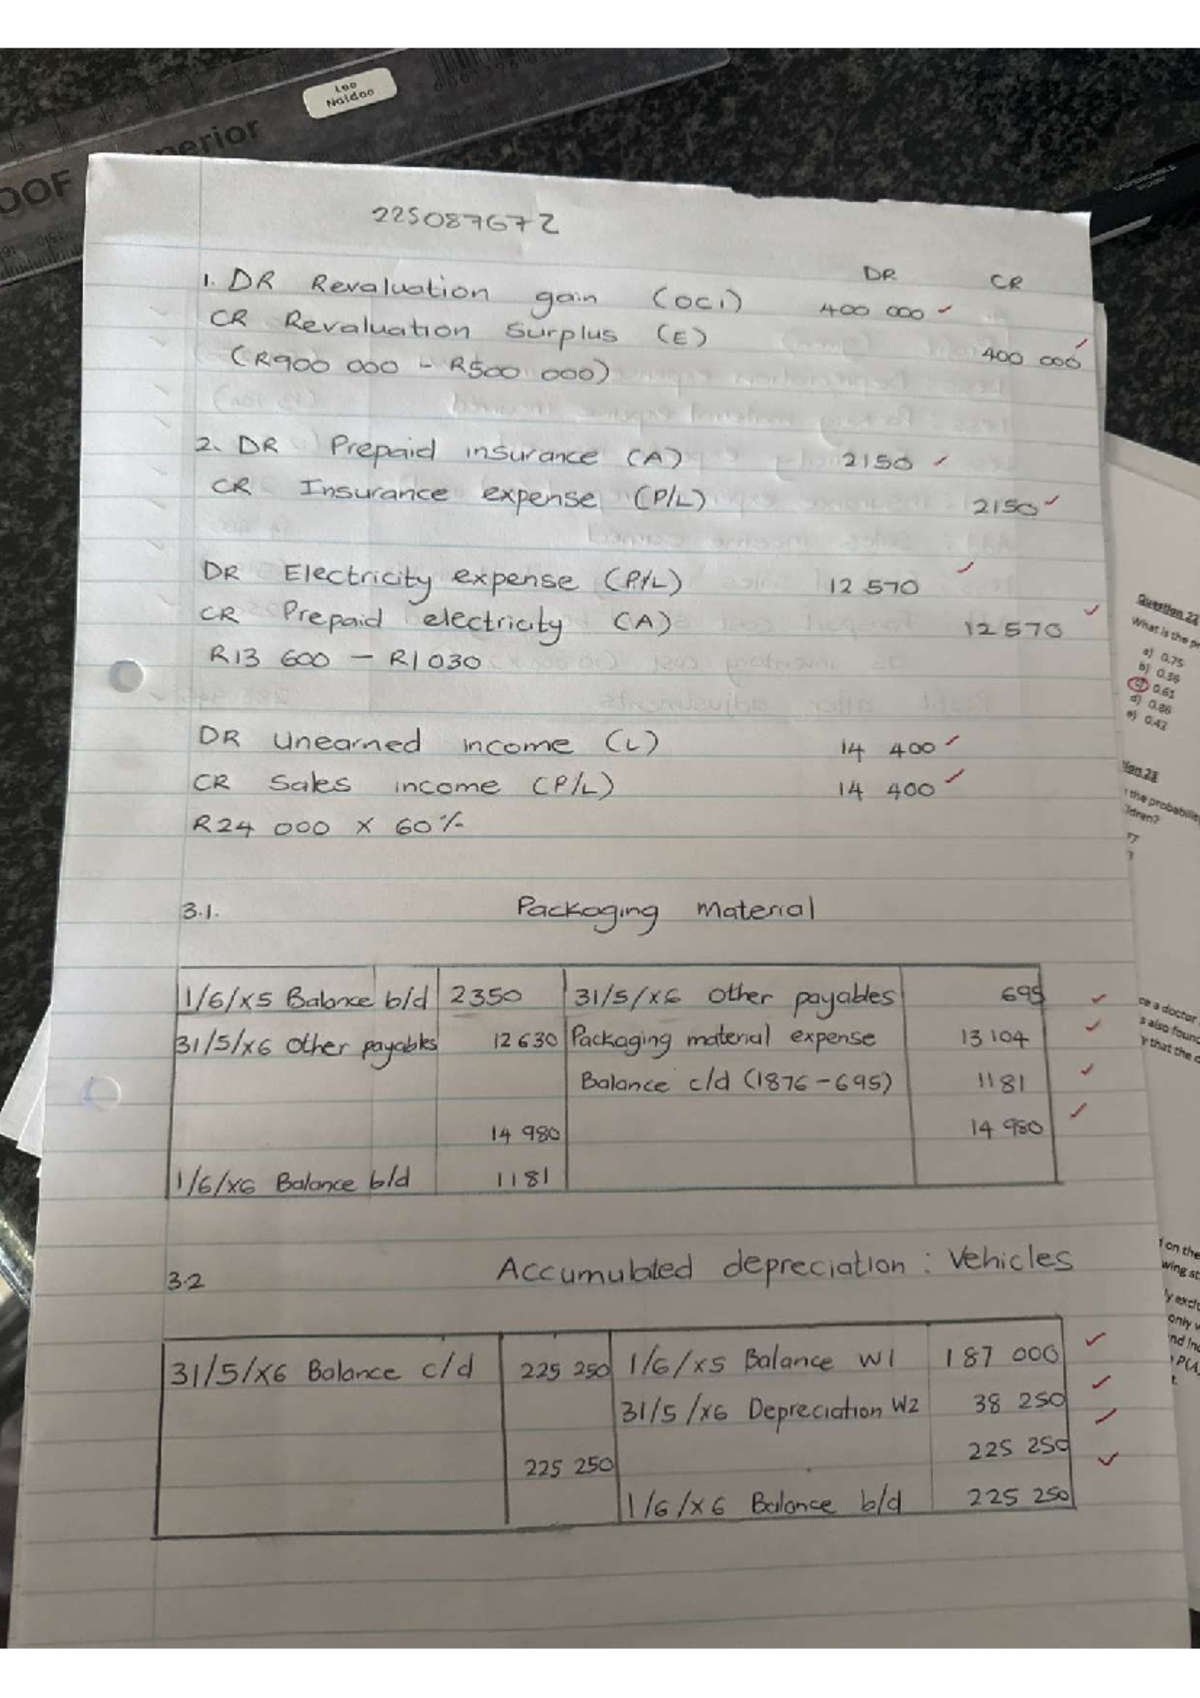 Leo
Naidoo
perior
OOF
225087672
DR CR
1. DR Revaluation gain (OCI) 400 000
CR Revaluation Surplus (E) 400 000
(R900 000 - R500 000)
2. DR Prepaid insurance (A) 2150
CR Insurance expense (P/L) 2150
DR Electricity expense (P/L) 12 570
CR Prepaid electricity (A) 12 570
R13 600 - R1 030
DR Unearned income (L) 14 400
CR Sales income (P/L) 14 400
R24 000 X 60%
3.1. Packaging Material
1/6/X5 Balance b/d 2350 31/5/X6 Other payables 695
31/5/X6 Other payables 12 630 Packaging material expense 13 104
Balance c/d (1876-695) 1181
14 980 14 980
1/6/X6 Balance b/d 1181
3.2 Accumulated depreciation: Vehicles
31/5/X6 Balance c/d 225 250 1/6/X5 Balance W1 187 000
31/5/X6 Depreciation W2 38 250
225 250 225 250
1/6/X6 Balance b/d 225 250
Question 22
What is the
a) 0.75
b) 0.36
c) 0.61
d) 0.86
e) 0.42
the probability
ce a doctor
s also found
y that the
on the
only